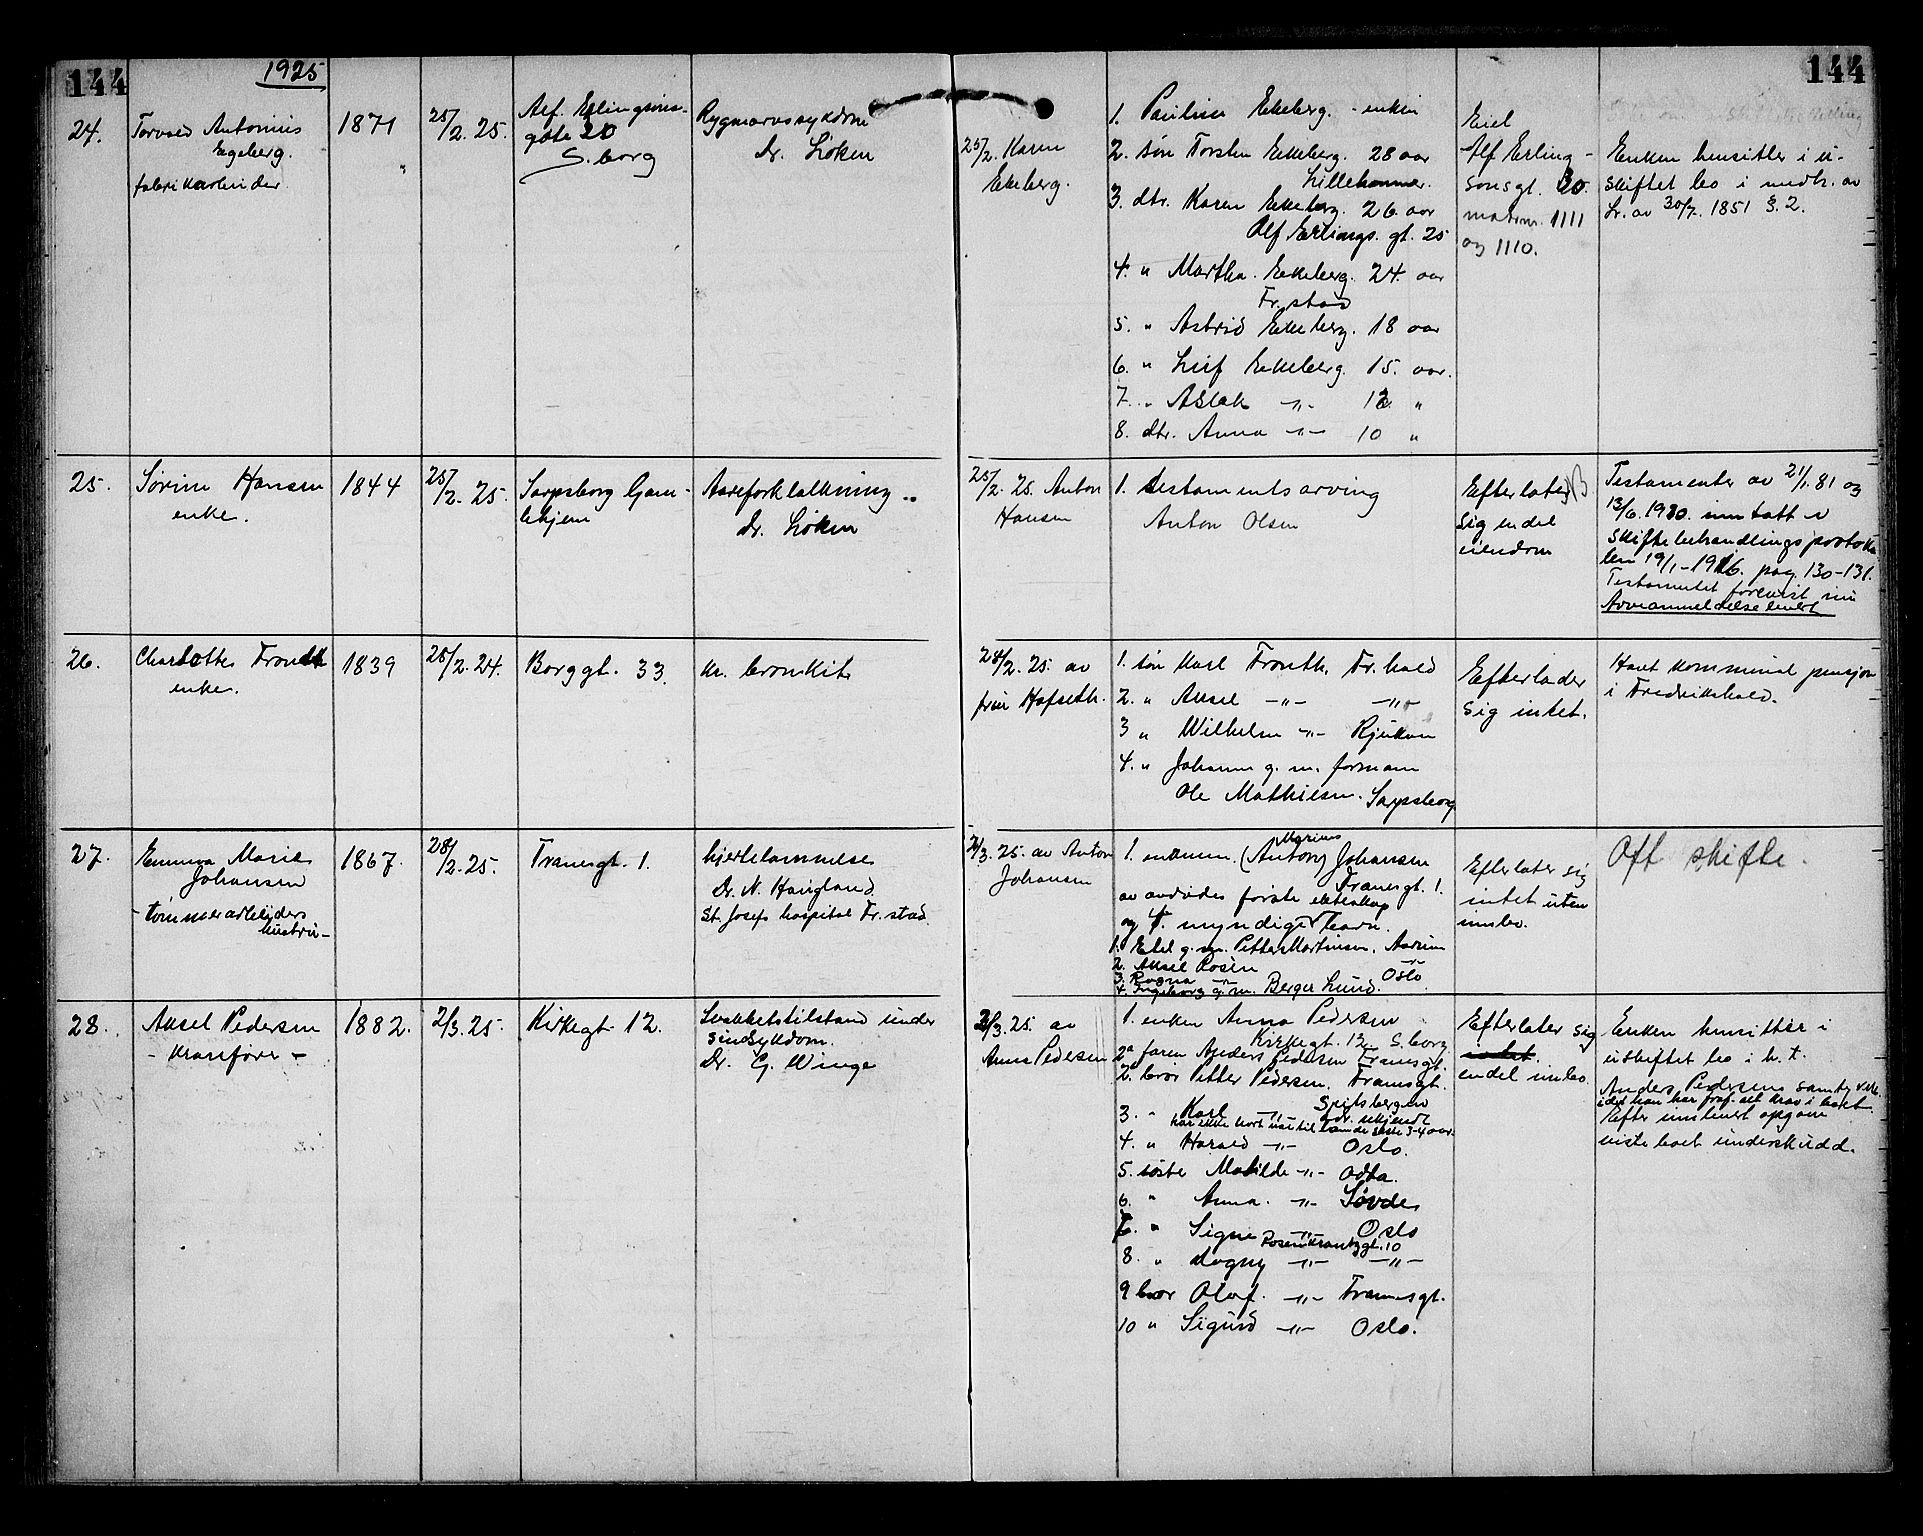 144
1925
144
24.
Torvald Antonius
Egeberg.
fabrikarbeider.
1871
25/2. 25.
Alf. Erlingsons-
gate 20
S.borg
Rygmarvssykdom
Dr. Løken
25/2. Karen
Ekeberg.
1. Pauline Ekeberg. - enken
2. søn Torsten Ekeberg. 28 aar
Lillehammer.
3. dtr. Karen Ekeberg. 26 aar
Alf Erlings. gt. 25
4. " Martha. Ekeberg. 24. aar
Fr.stad
5. " Astrid Ekeberg. 18 aar
6. " Leif Ekeberg. 15. aar.
7. " Aslak -"- 13 "
8. dtr. Anna -"- 10 "
Eiel
Alf Erling-
sonsgt. 30.
matrnr. 1111
og 1110.
Enken hensitter i u-
skiftet bo i medh. av
L. av 30/7. 1851 §. 2.
25.
Sørine Hansen
enke.
1844
25/2. 25.
Sarpsborg Gam-
lehjem
Aareforkalkning
Dr. Løken
25/2. 25. Anton
Hansen
1. testamentsarving
Anton Olsen
Efterlater
sig endel
eiendom
Testamenter av 21/1. 81 og
13/6. 1910. inntatt i
Skiftebehandlingsprotokol
len 19/1-1916. pag. 130-131.
Testamentet forevist
Arveanmeldelse levert
26.
Charlotte Tronth
enke.
1839
25/2. 24.
Borggt. 33.
kr. bronkit
28/2. 25. av
fru Hafseth.
1. søn Karl Tronth. Fr.hald
2. " Aksel -"- -"-
3 " Wilhelm -"- Rjukan
4. " Johanne g. m. formann
Ole Mathisen. Sarpsborg
Efterlader
sig intet.
Havt kommunal pensjon
i Fredrikshald.
27.
Emma Marie
Johansen
- tømmerarbeiders
hustru -
1867.
28/2. 25.
Tranesgt. 1.
hjertelammelse
Dr. N. Haugland.
St. Josefs hospital Fr.stad.
2/3. 25. av Anton
Johansen
Marius
1. enkemn. (Anton) Johansen
Tranesgt. 1.
av avdødes første ekteskap
og 4. myndige barn.
1. Edel g. m. Petter Martinsen, Aarum
2. Aksel Rosèn -"-
3. Ragna -"- Oslo
4. Ingeborg g. m. Berger Lund.
Efterlater sig
intet uten
innbo.
Off skifte.
28.
Aksel Pedersen
- kranfører -
1882.
2/3. 25.
Kirkegt. 12.
Svakketstilstand under
sindsykdom.
Dr. G. Winge
2/3. 25. av
Anna Pedersen
1. enken Anna Pedersen
Kirkegt. 12. S.borg
2a faren Anders Pedersen Tranesgt.
2. bror Petter Pedersen. Tranesgt.
Spitsbergen
3. " Karl -"- adr. ukjendt
har ikke hørt noe til ham de siste 3-4 aar.
4. " Harald -"- Oslo.
5. søster Matilde -"- Odda.
6. " Anna. -"- Søvde
7. " Signe -"- Oslo
Rosenkrantzgt. 10
8. " Dagny -"- -"-
9 bror Olaf. -"- Tranesgt.
10 " Sigurd -"- Oslo.
Efterlater sig
intet.
endel innbo.
Enken hensitter i
uskiftet bo i h. t.
Anders Pedersens samtykke
idet han har fraf. alt krav i boet
Efter innlevert opgave
viste boet underskudd.